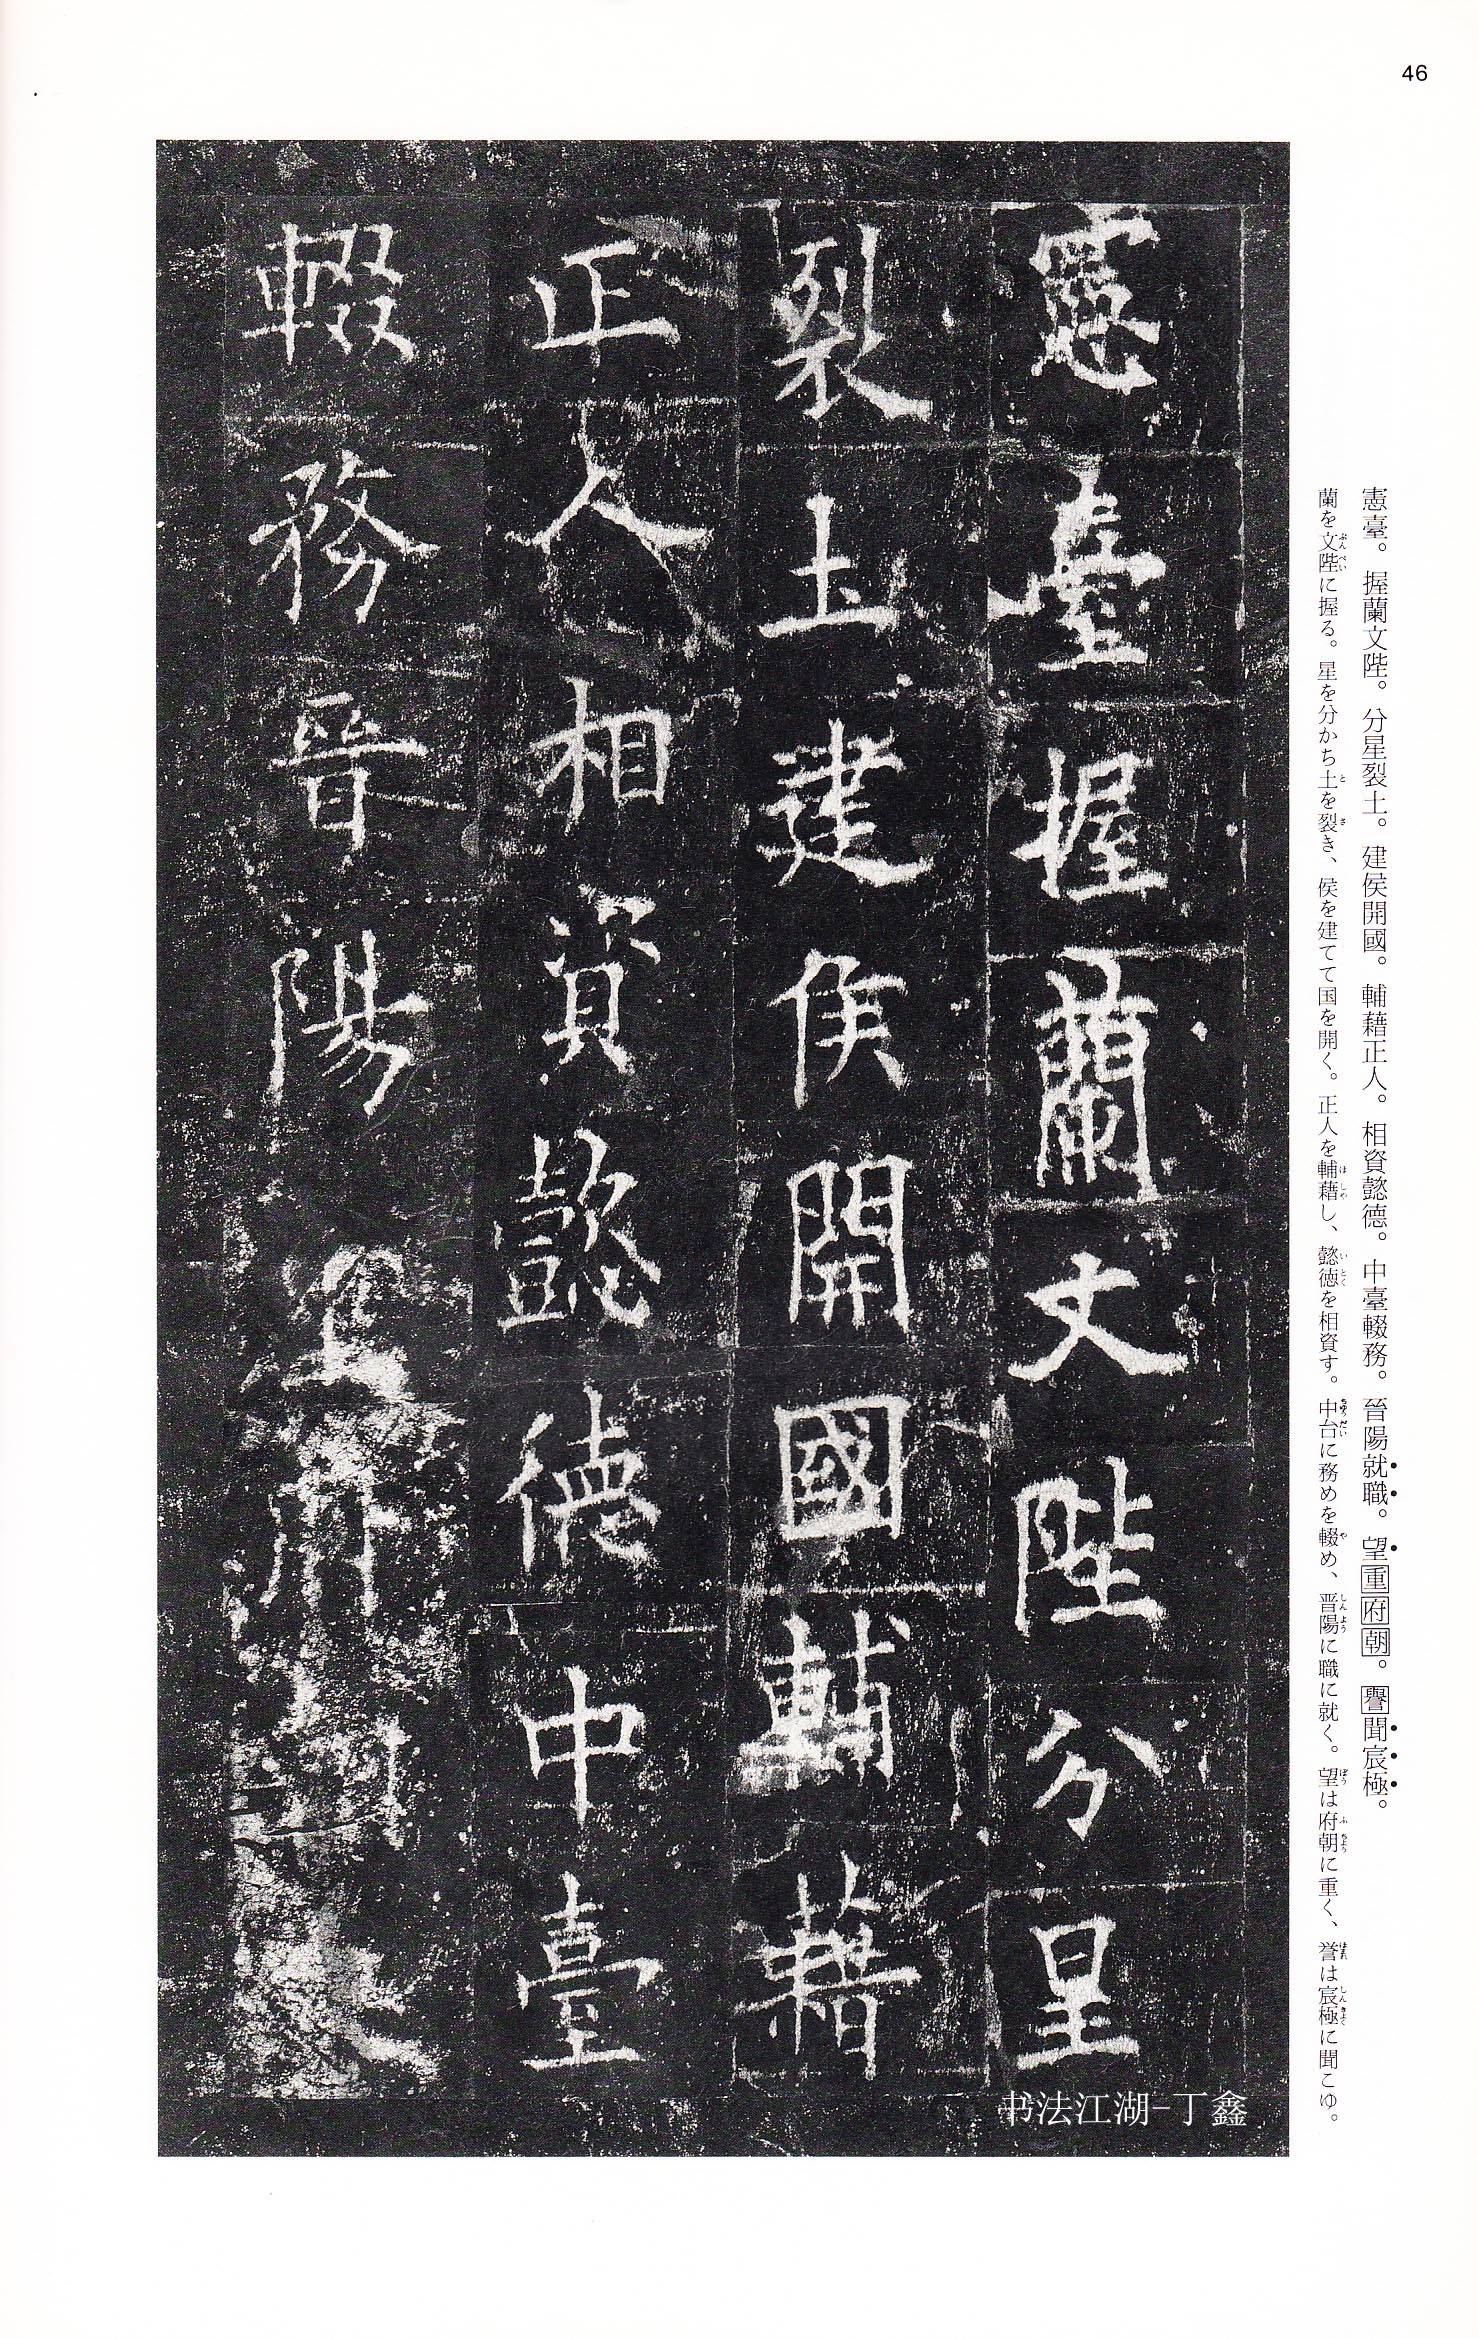 46
憲臺。握蘭文陛。分星裂土。建侯開國。輔藉正人。相資懿德。中臺輟務。晉陽就職。望重府朝。譽聞宸極。
蘭を文陛に握る。星を分かち土を裂き、侯を建てて国を開く。正人を輔藉し、懿徳を相資す。中台に務めを輟め、晋陽に職に就く。望は府朝に重く、誉は宸極に聞こゆ。
憲臺握蘭文陛分星
裂土建侯開國輔藉
正人相資懿德中臺
輟務晉陽
书法江湖-丁鑫